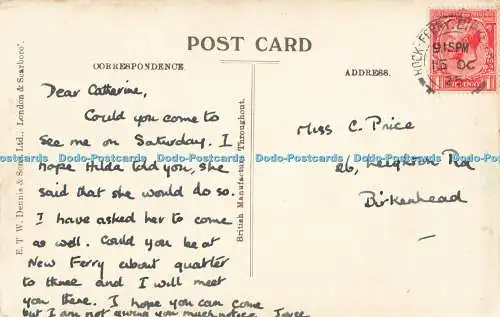 POST CARD
CORRESPONDENCE
ADDRESS.
E. T. W. Dennis & Sons, Ltd., London & Scarboro'.
Dear Catherine,
Could you come to
see me on Saturday. I
hope Hilda told you, she
said that she would do so.
I have asked her to come
as well. Could you be at
New Ferry about quarter
to three and I will meet
you there. I hope you can come
but I am not giving you much notice. Joyce
British Manufacture Throughout.
Miss C. Price
26, Leighton Rd
Birkenhead
ROCK-FERRY
915PM
15 OC
25
Dodo-Postcards Dodo-Postcards Dodo-Postcards Dodo-Postcards Dodo-Postcards